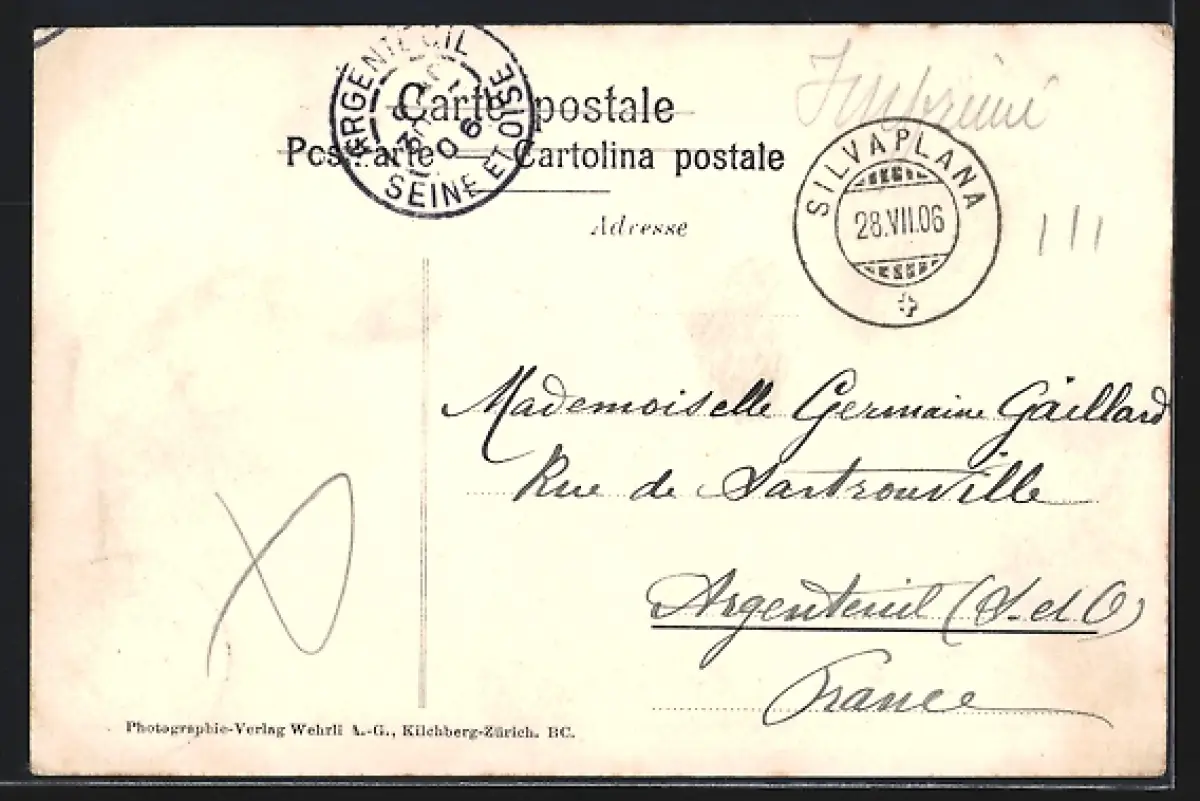 ARGENTEUIL
SEINE ET OISE
06
Carte postale
Postkarte — Cartolina postale
Imprimé
Adresse
SILVAPLANA
28.VII.06
Mademoiselle Germaine Gaillard
Rue de Sartrouville
Argenteuil (S. et O)
France
Photographie-Verlag Wehrli A.-G., Kilchberg-Zürich. BC.